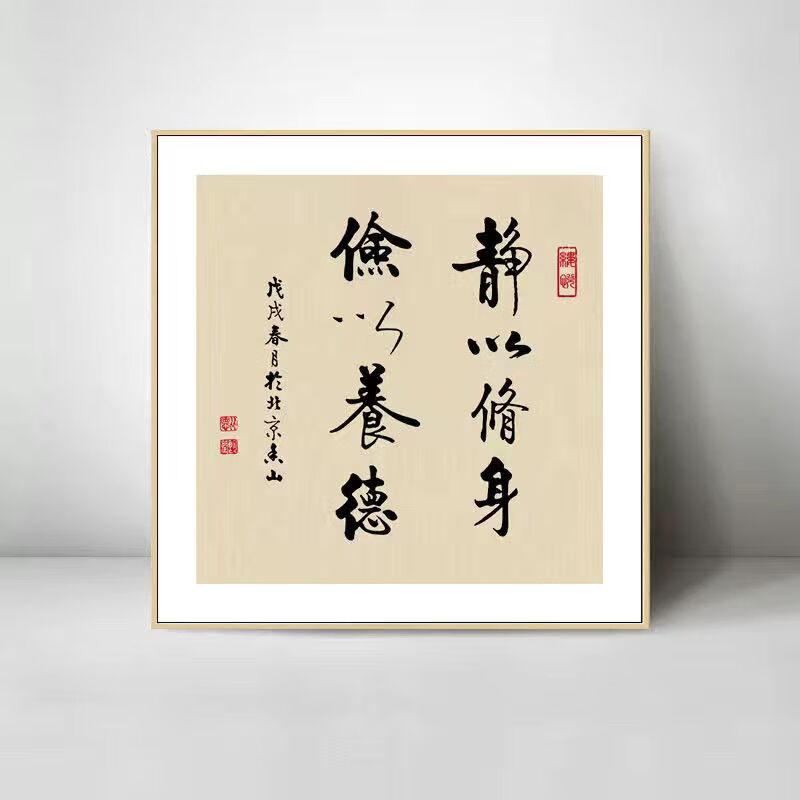 静以脩身
儉以養德
戊戌春月於北京香山